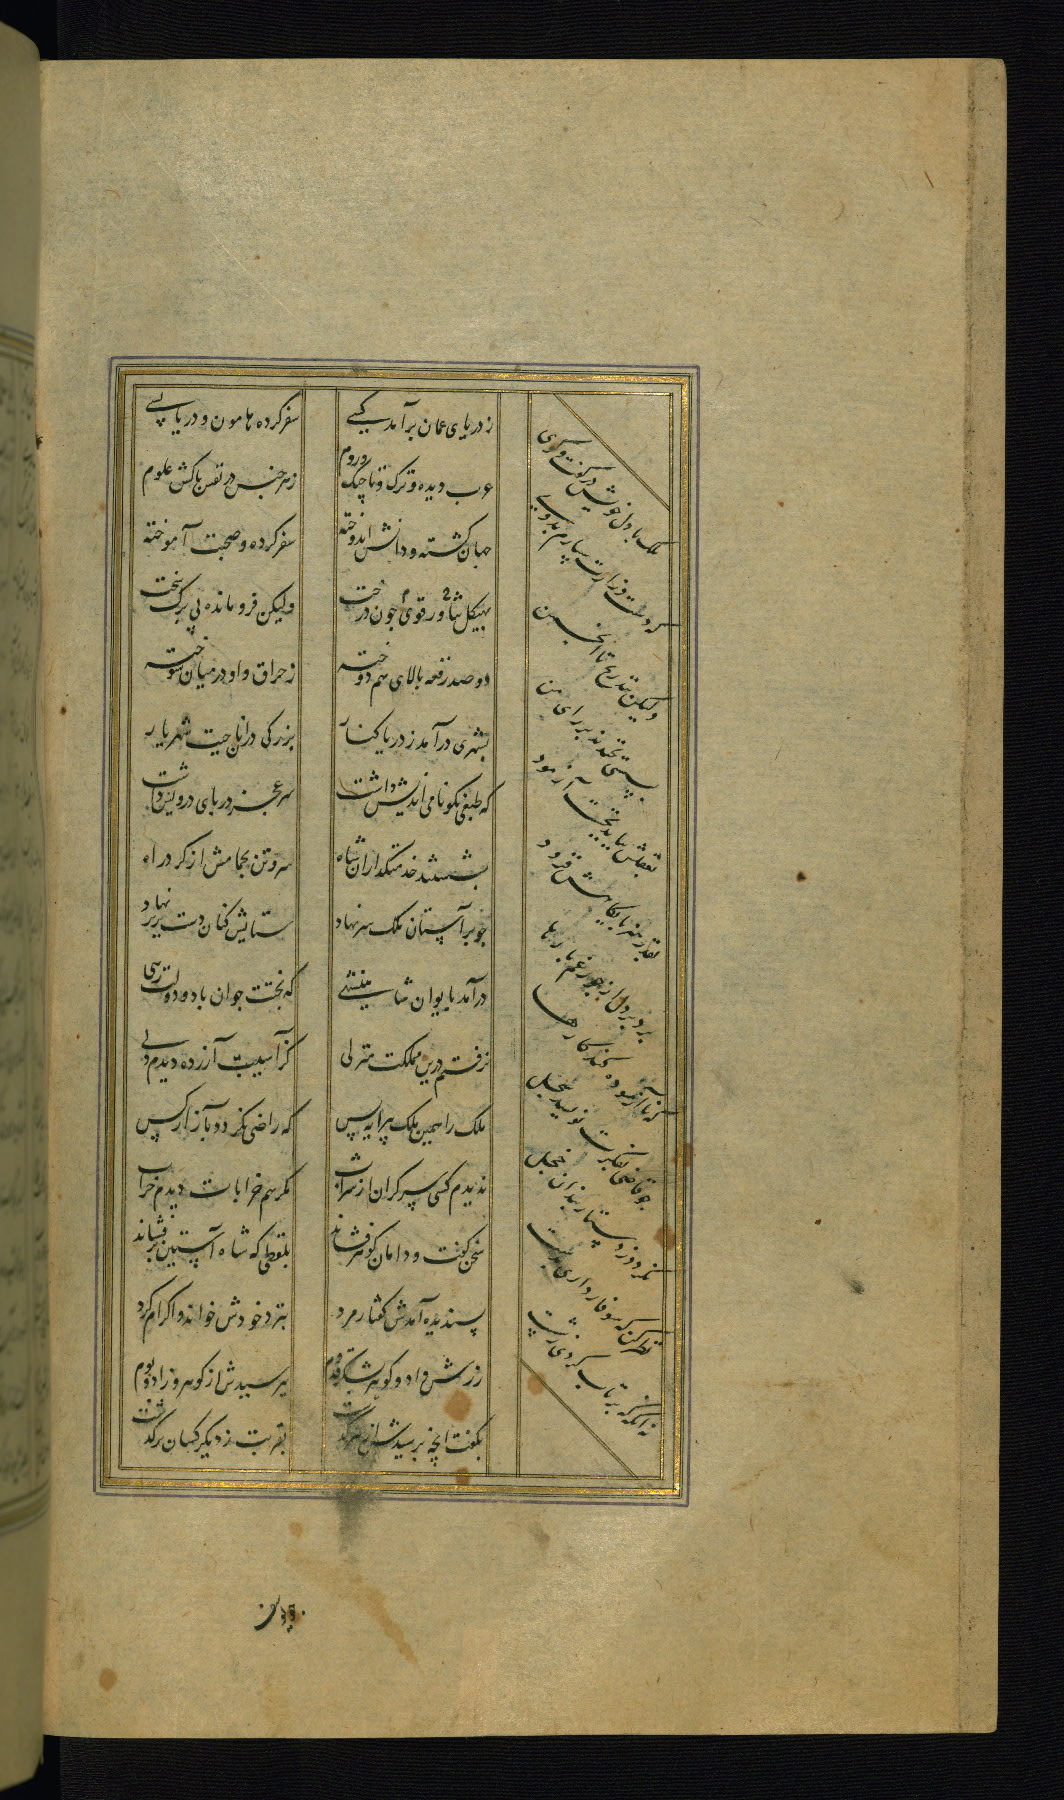 ز دریای عمان برآمد کسی
سفر کرده هامون و دریا بسی
عرب دیده و ترک و تاجیک و روم
ز هر جنس در نفس پاکش علوم
جهان گشته و دانش اندوخته
سفر کرده و صحبت آموخته
بهیکل قوی چون تناور درخت
ولیکن فرو مانده بی برک سخت
دو صد رقعه بالای هم دوخته
ز حراق و او در میان سوخته
بشهری درآمد ز دریا کنار
بزرکی در آن ناحیت شهریار
که طبعی نکونامی اندیش داشت
سر عجز در پای درویش داشت
بشستند خدمتکذاران شاه
سر و تن بحمامش از کرد راه
چو بر آستان ملک سر نهاد
ستایش کنان دست بر بر نهاد
درآمد بایوان شاهنشهی
که بختت جوان باد و دولت رهی
نرفتم درین مملکت منزلی
کز آسیب آزرده دیدم دلی
ملک را همین ملک پیرایه بس
که راضی نکردد بآزار کس
ندیدم کسی سر کران از شراب
مکر هم خرابات دیدم خراب
سخن کفت و دامان کوهر فشاند
بلفظی که شاه آستین برفشاند
پسندیده آمدش کفتار مرد
بنزد خودش خواند و اکرام کرد
زرش داد و کوهر بشکر قدوم
بپرسیدش از کوهر و زاد و بوم
بکفت آنچه پرسیدش از سرکذشت
بقربت ز دیکر کسان برکذشت
ملک با دل خویش در کفت و کوی
که دست وزارت سپارم بدوی
ولیکن بتدریج تا انجمن
بسستی نخندند بر رای من
بعقلش بباید نخست آزمود
بقدر هنر پایکاهش فزود
برد بر دل از جور غم بارها
که نا آزموده کند کارها
چو قاضی بفکرت نویسد سجل
نکردد ز دستاربندان خجل
نظر کن که سوفار داری بشست
نه آنکه که پرتاب کردی ز شست